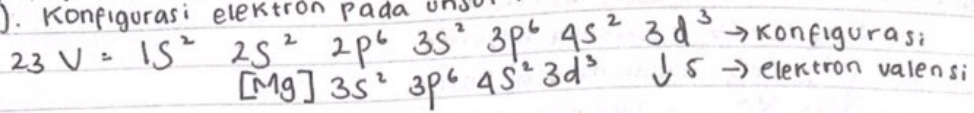 ). Konfigurasi elektron pada unsur
23 V = 1S² 2S² 2p⁶ 3S² 3p⁶ 4S² 3d³ → Konfigurasi
[Mg] 3S² 3p⁶ 4S² 3d³ ↓ 5 → elektron valensi